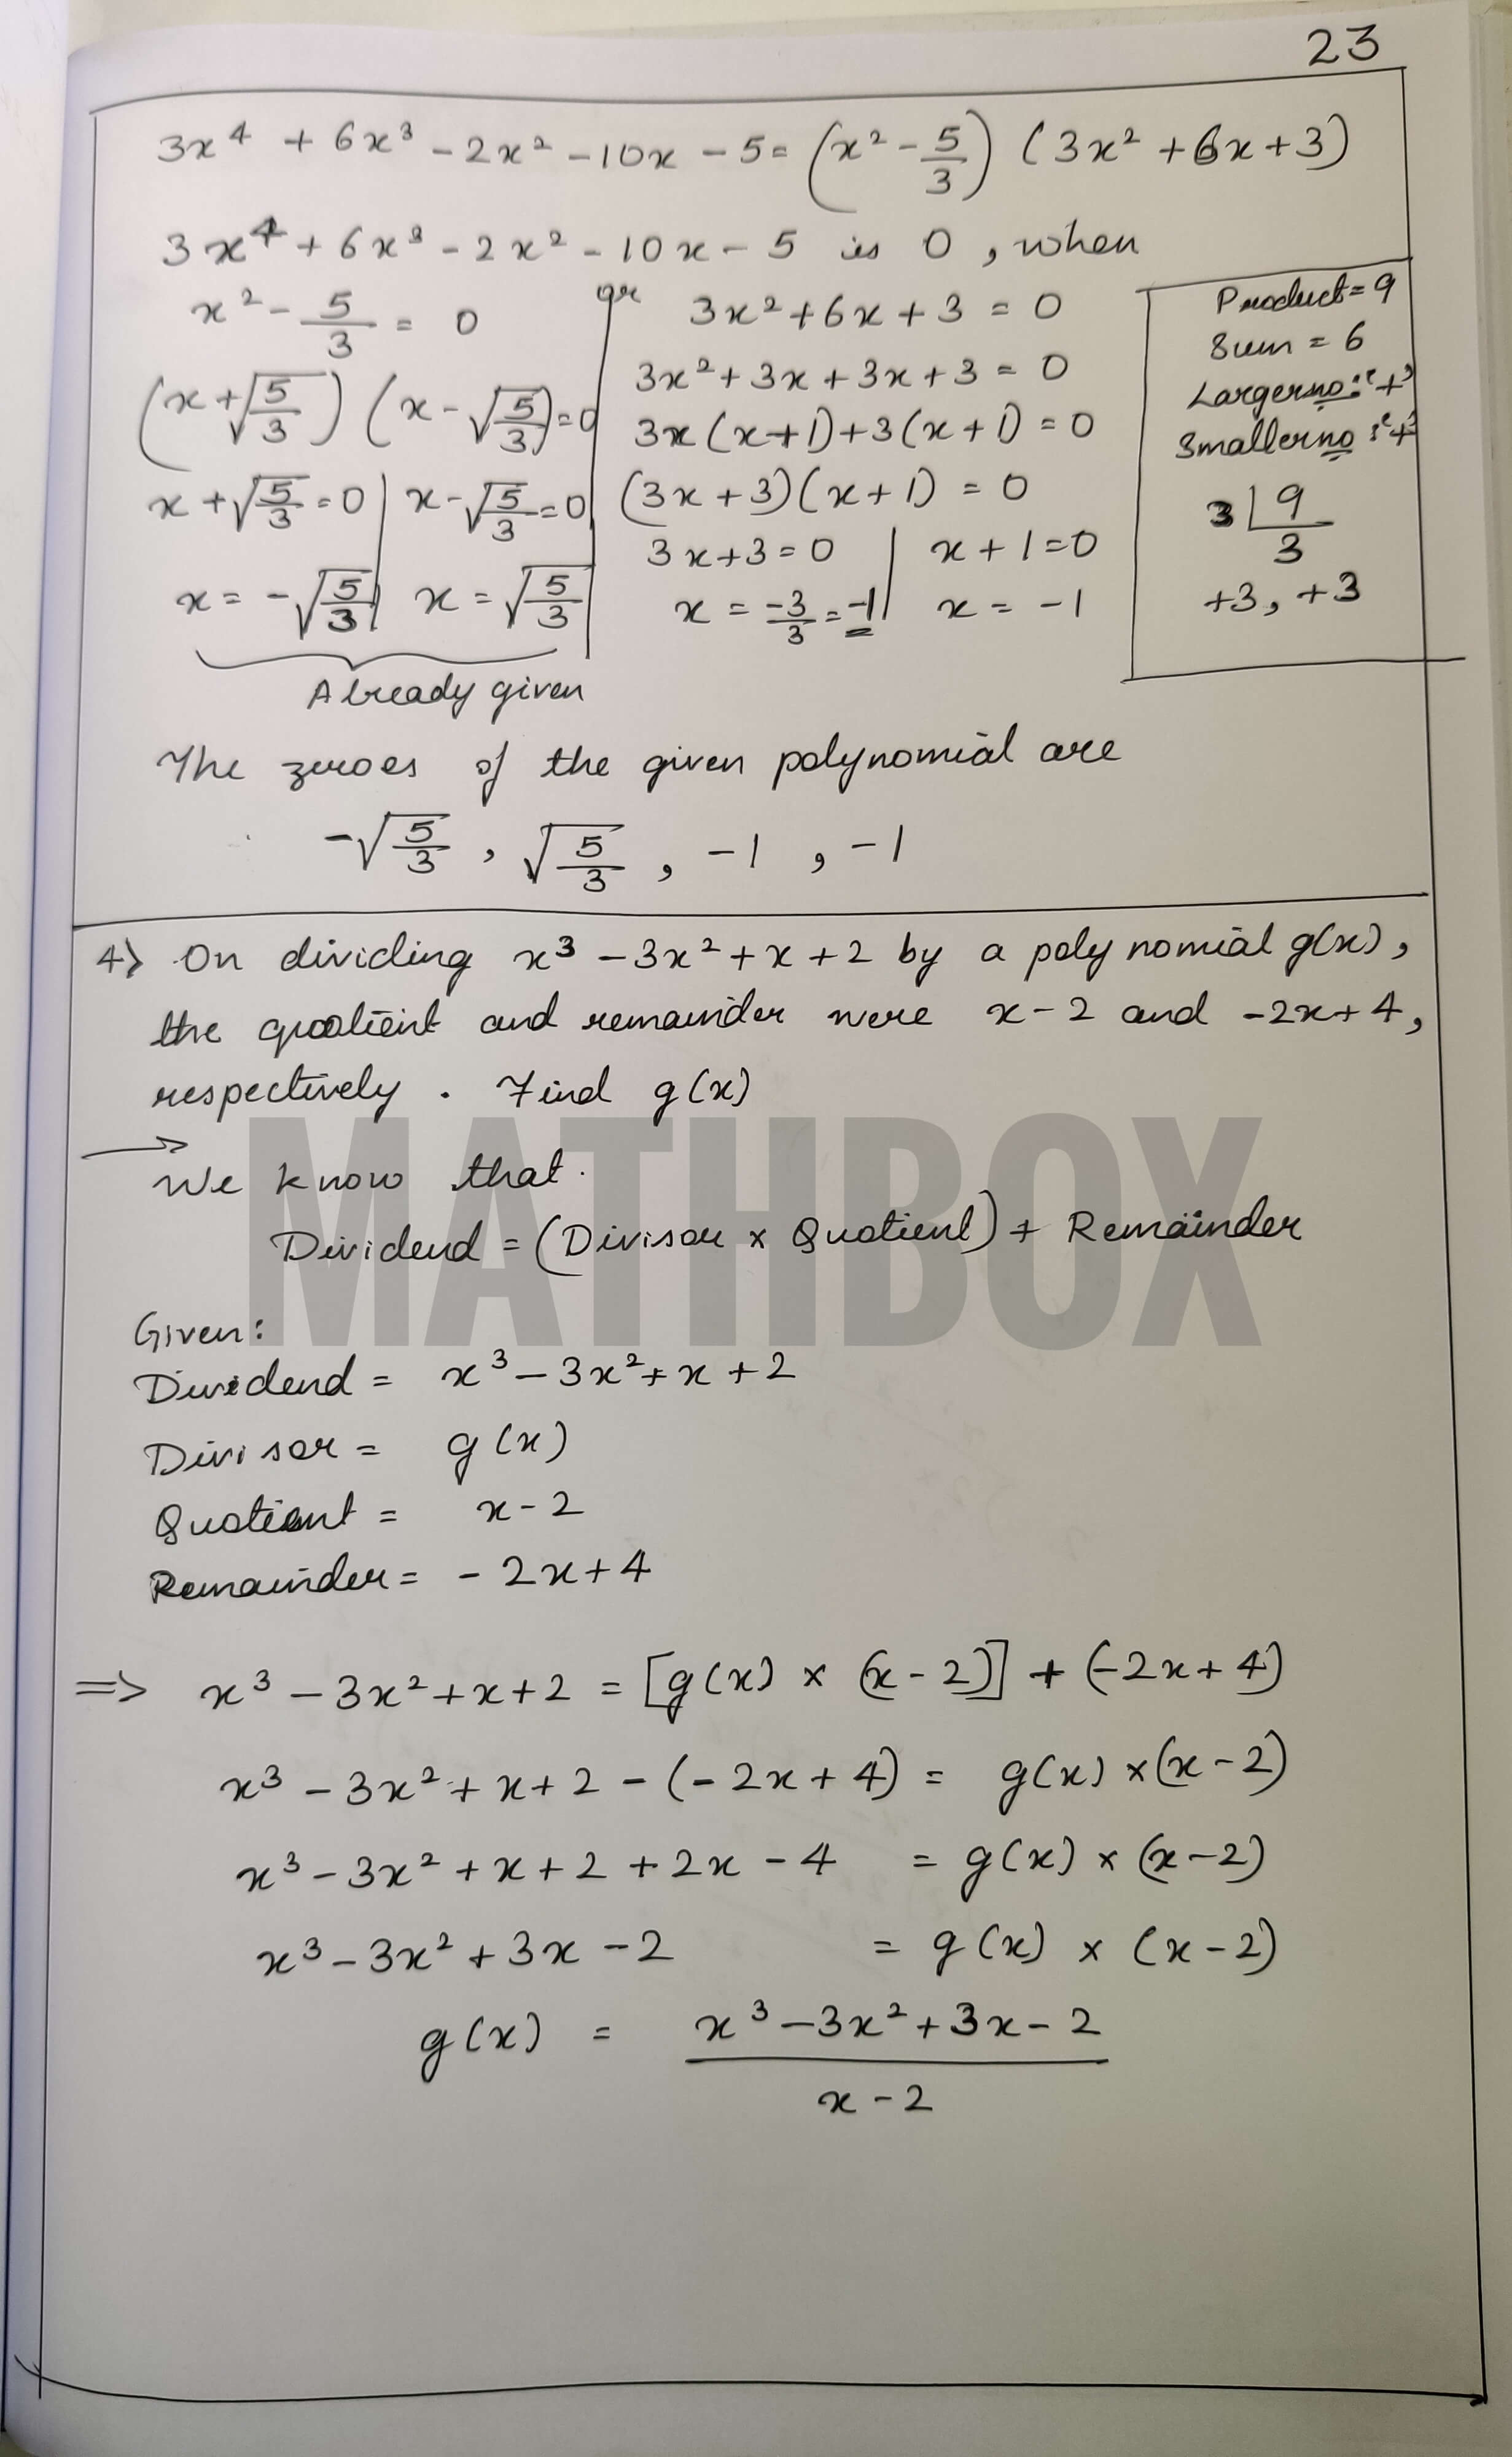 23
3x⁴ + 6x³ - 2x² - 10x - 5 = (x² - 5/3) (3x² + 6x + 3)
3x⁴ + 6x³ - 2x² - 10x - 5 is 0, when
x² - 5/3 = 0 or 3x² + 6x + 3 = 0
(x + √(5/3)) (x - √(5/3)) = 0 3x² + 3x + 3x + 3 = 0
3x(x+1) + 3(x+1) = 0
x + √(5/3) = 0 | x - √(5/3) = 0 (3x+3)(x+1) = 0
3x+3 = 0 | x+1 = 0
x = -√(5/3) | x = √(5/3) x = -3/3 = -1 | x = -1
Already given
Product = 9
Sum = 6
Larger no : '+'
Smaller no : '+'
3 | 9
3
+3, +3
The zeroes of the given polynomial are
-√(5/3), √(5/3), -1, -1
4> On dividing x³ - 3x² + x + 2 by a polynomial g(x),
the quotient and remainder were x - 2 and -2x + 4,
respectively. Find g(x)
→
We know that.
Dividend = (Divisor × Quotient) + Remainder
MATHBOX
Given:
Dividend = x³ - 3x² + x + 2
Divisor = g(x)
Quotient = x - 2
Remainder = - 2x + 4
=> x³ - 3x² + x + 2 = [g(x) × (x - 2)] + (-2x + 4)
x³ - 3x² + x + 2 - (-2x + 4) = g(x) × (x - 2)
x³ - 3x² + x + 2 + 2x - 4 = g(x) × (x - 2)
x³ - 3x² + 3x - 2 = g(x) × (x - 2)
g(x) = x³ - 3x² + 3x - 2
x - 2